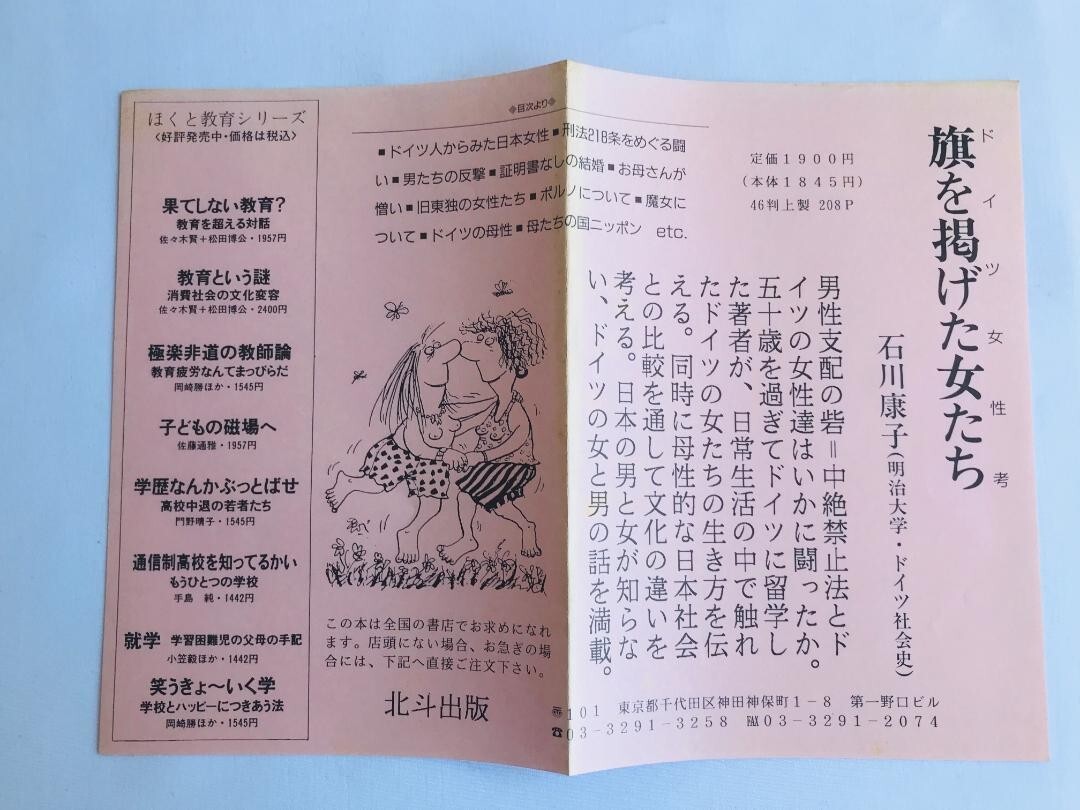 旗を掲げた女たち
ドイツ女性考
石川康子(明治大学・ドイツ社会史)
定価1900円
(本体1845円)
46判上製 208P
男性支配の砦=中絶禁止法とド
イツの女性達はいかに闘ったか。
五十歳を過ぎてドイツに留学し
た著者が、日常生活の中で触れ
たドイツの女たちの生き方を伝
える。同時に母性的な日本社会
との比較を通して文化の違いを
考える。日本の男と女が知らな
い、ドイツの女と男の話を満載。
◆目次より◆
■ドイツ人からみた日本女性■刑法218条をめぐる闘
い■男たちの反撃■証明書なしの結婚■お母さんが
憎い■旧東独の女性たち■ポルノについて■魔女に
ついて■ドイツの母性■母たちの国ニッポン etc.
この本は全国の書店でお求めになれ
ます。店頭にない場合、お急ぎの場
合には、下記へ直接ご注文下さい。
北斗出版
〠101 東京都千代田区神田神保町1-8 第一野口ビル
☎03-3291-3258 FAX03-3291-2074
ほくと教育シリーズ
<好評発売中・価格は税込>
果てしない教育?
教育を超える対話
佐々木賢+松田博公・1957円
教育という謎
消費社会の文化変容
佐々木賢+松田博公・2400円
極楽非道の教師論
教育疲労なんてまっぴらだ
岡崎勝ほか・1545円
子どもの磁場へ
佐藤通雅・1957円
学歴なんかぶっとばせ
高校中退の若者たち
門野晴子・1545円
通信制高校を知ってるかい
もうひとつの学校
手島 純・1442円
就学 学習困難児の父母の手記
小笠毅ほか・1442円
笑うきょ〜いく学
学校とハッピーにつきあう法
岡崎勝ほか・1545円